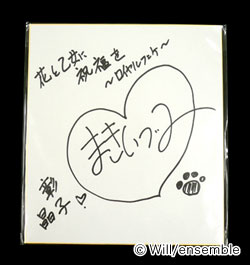 花と乙女に
祝福を
～ロイヤルブーケ～
まきいづみ
彰
晶子♡
© Will/ensemble